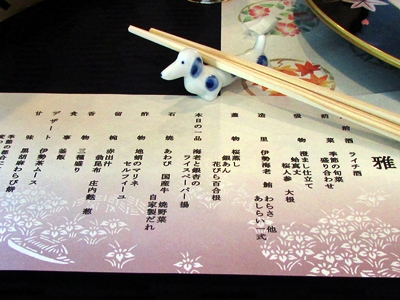 雅
酒 ライチ酒
菜 季節の旬菜
盛り合わせ
吸物 澄まし仕立て
蛤真丈
桜人参 大根
造里 伊勢海老 鮪 わらさ 他
あしらい一式
蓋物 桜蒸し
銀あん
花びら百合根
本日の一品 海老と銀杏の
ライスペーパー揚
石焼 あわび 国産牛 焼野菜
自家製だれ
酢物 地蛸のマリネ
セルフィーユ
留椀 赤出汁
糸昆布 庄内麩 葱
香物 三種盛り
食事 釜飯
デザート
甘味 伊勢茶ムース
黒胡麻わらび餅
季節の都合